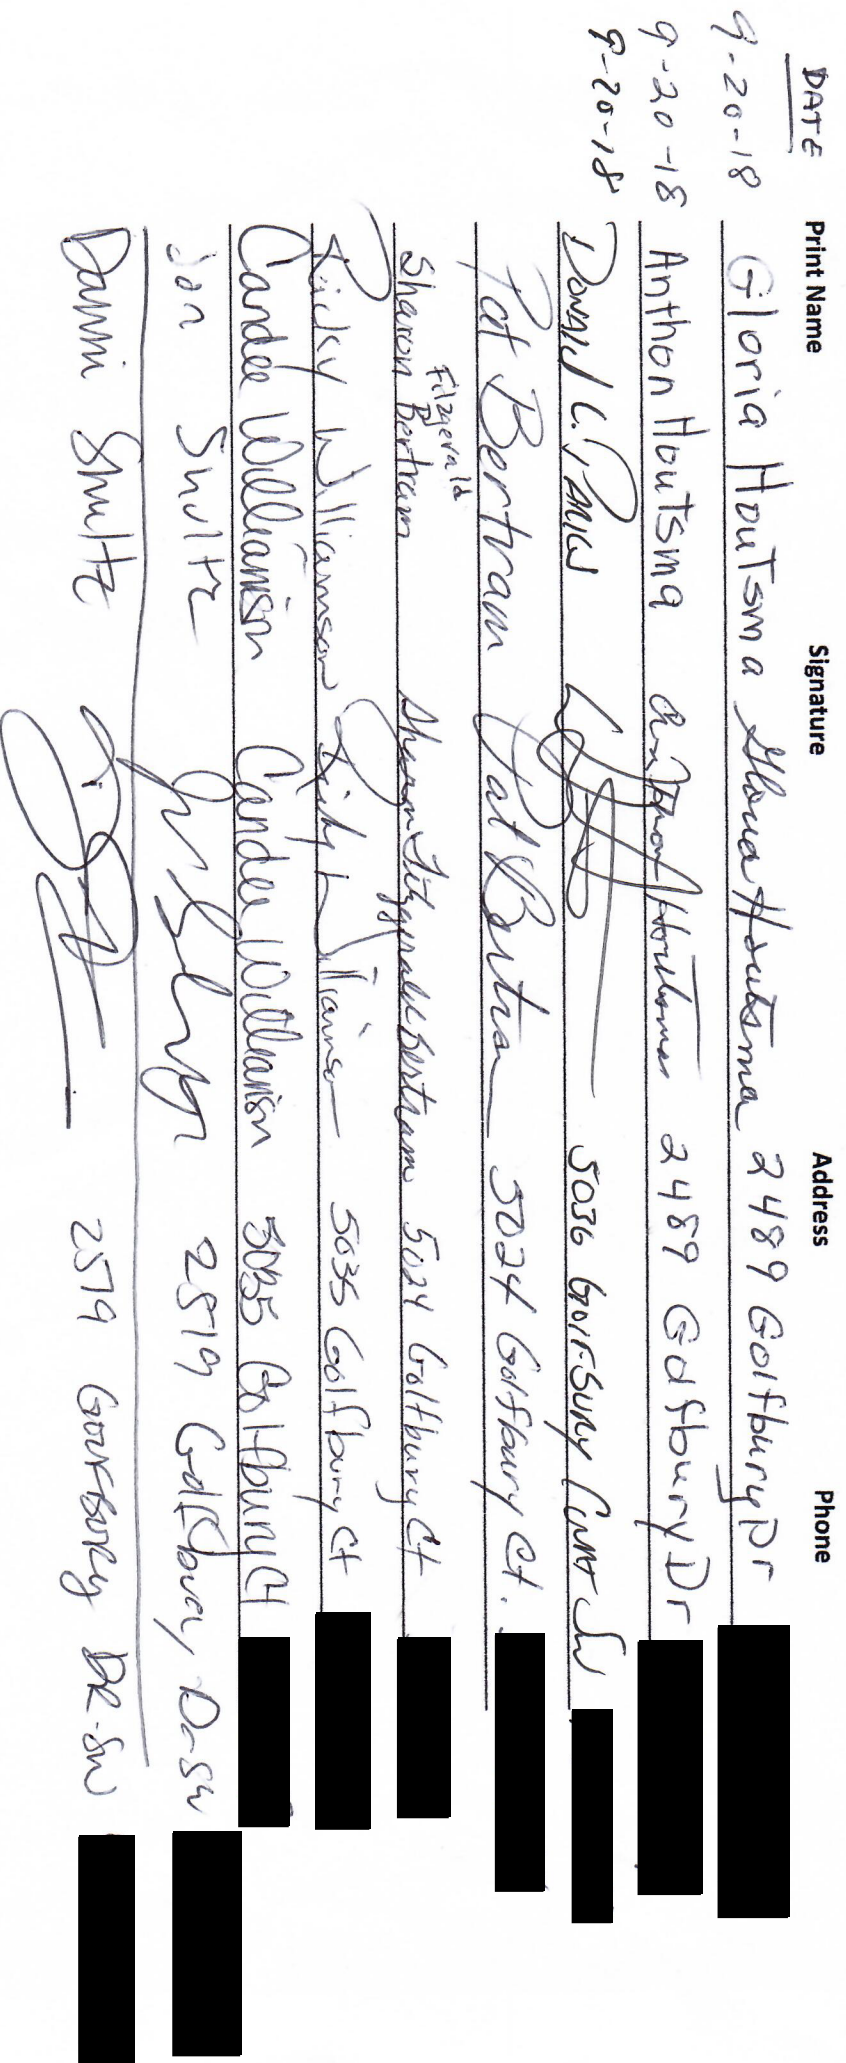 DATE Print Name Signature Address Phone
9-20-18 Gloria Houtsma Gloria Houtsma 2489 Golfbury Dr
9-20-18 Anthon Houtsma Anthon Houtsma 2489 Golfbury Dr
9-20-18 Donald C. 5036 Golfbury Court SW
Pat Bertram Pat Bertram 5024 Golfbury Ct.
Fitzgerald
Sharon Bertram Sharon Fitzgerald Bertram 5024 Golfbury Ct
Ricky Williamson Ricky Williamson 5035 Golfbury Ct
Candee Williamson Candee Williamson 5035 Golfbury Ct
Jon Shultz 2519 Golfbury Dr SW
Dammi Shultz 2519 Golfbury DR. SW